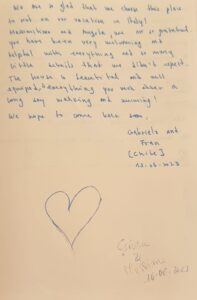 We are so glad that we chose this place
to rest on our vacations in Italy!
Massimiliano and Angela, we are so grateful.
you have been very welcoming and
helpful with everything and so many
little details that we didn't expect.
The house is beautiful and well
equiped, & everything you need after a
long day walking and running!
We hope to come back soon,
Gabriela and
Fran
(Chile)
15-06-2023
&
16-06-2023